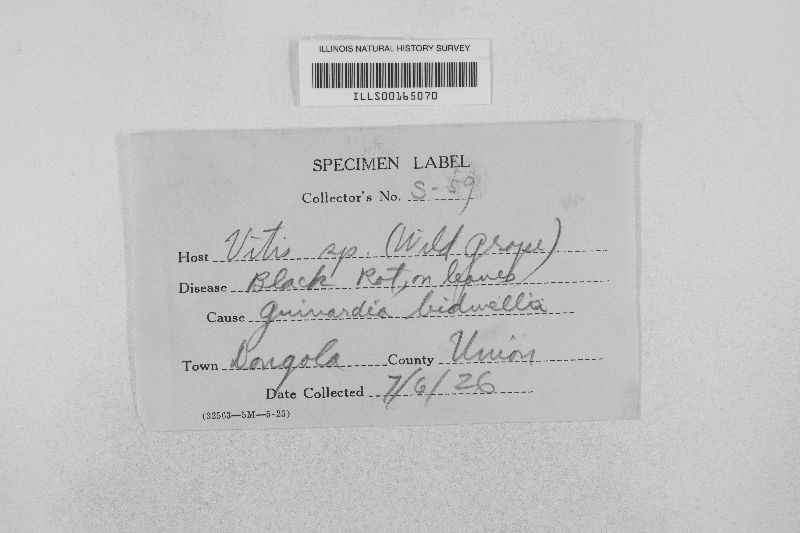 ILLINOIS NATURAL HISTORY SURVEY
ILLS00165070
SPECIMEN LABEL
Collector's No. S-59
Host Vitis sp. (Wild grape)
Disease Black Rot, on leaves
Cause Guinardia bidwellia
Town Dongola County Union
Date Collected 7/6/26
(32563—5M—5-25)